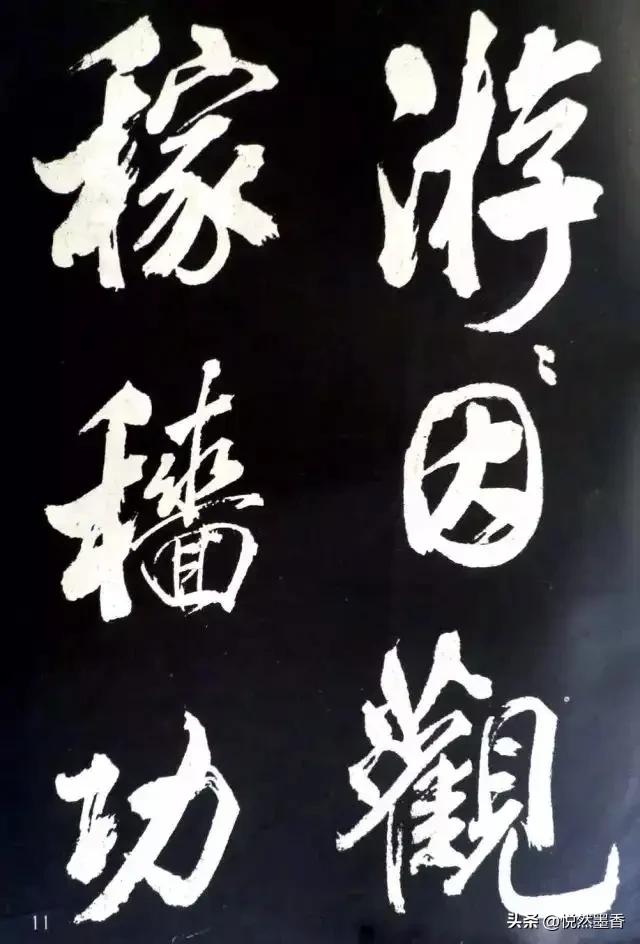 游〻因觀
稼穡功
11
头条 @悦然墨香